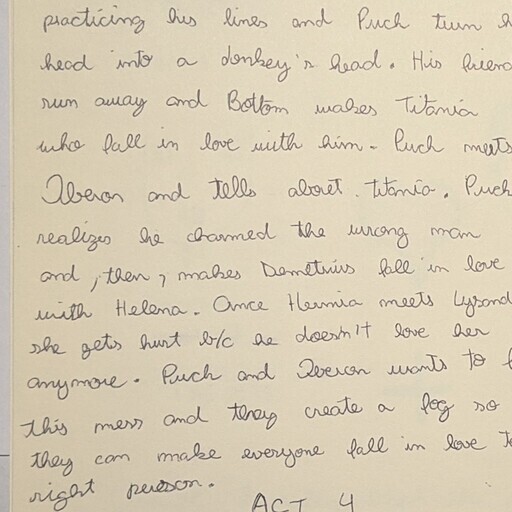 practicing his lines and Puck turn
head into a donkey's head. His
run away and Bottom wakes Titania
who fall in love with him. Puck meets
Oberon and tells about Titania. Puck
realizes he charmed the wrong man
and, then, makes Demetrius fall in love
with Helena. Once Hermia meets
she gets hurt b/c he doesn't love her
anymore. Puck and Oberon wants to
this mess and they create a fog so
they can make everyone fall in love
right person.
ACT 4